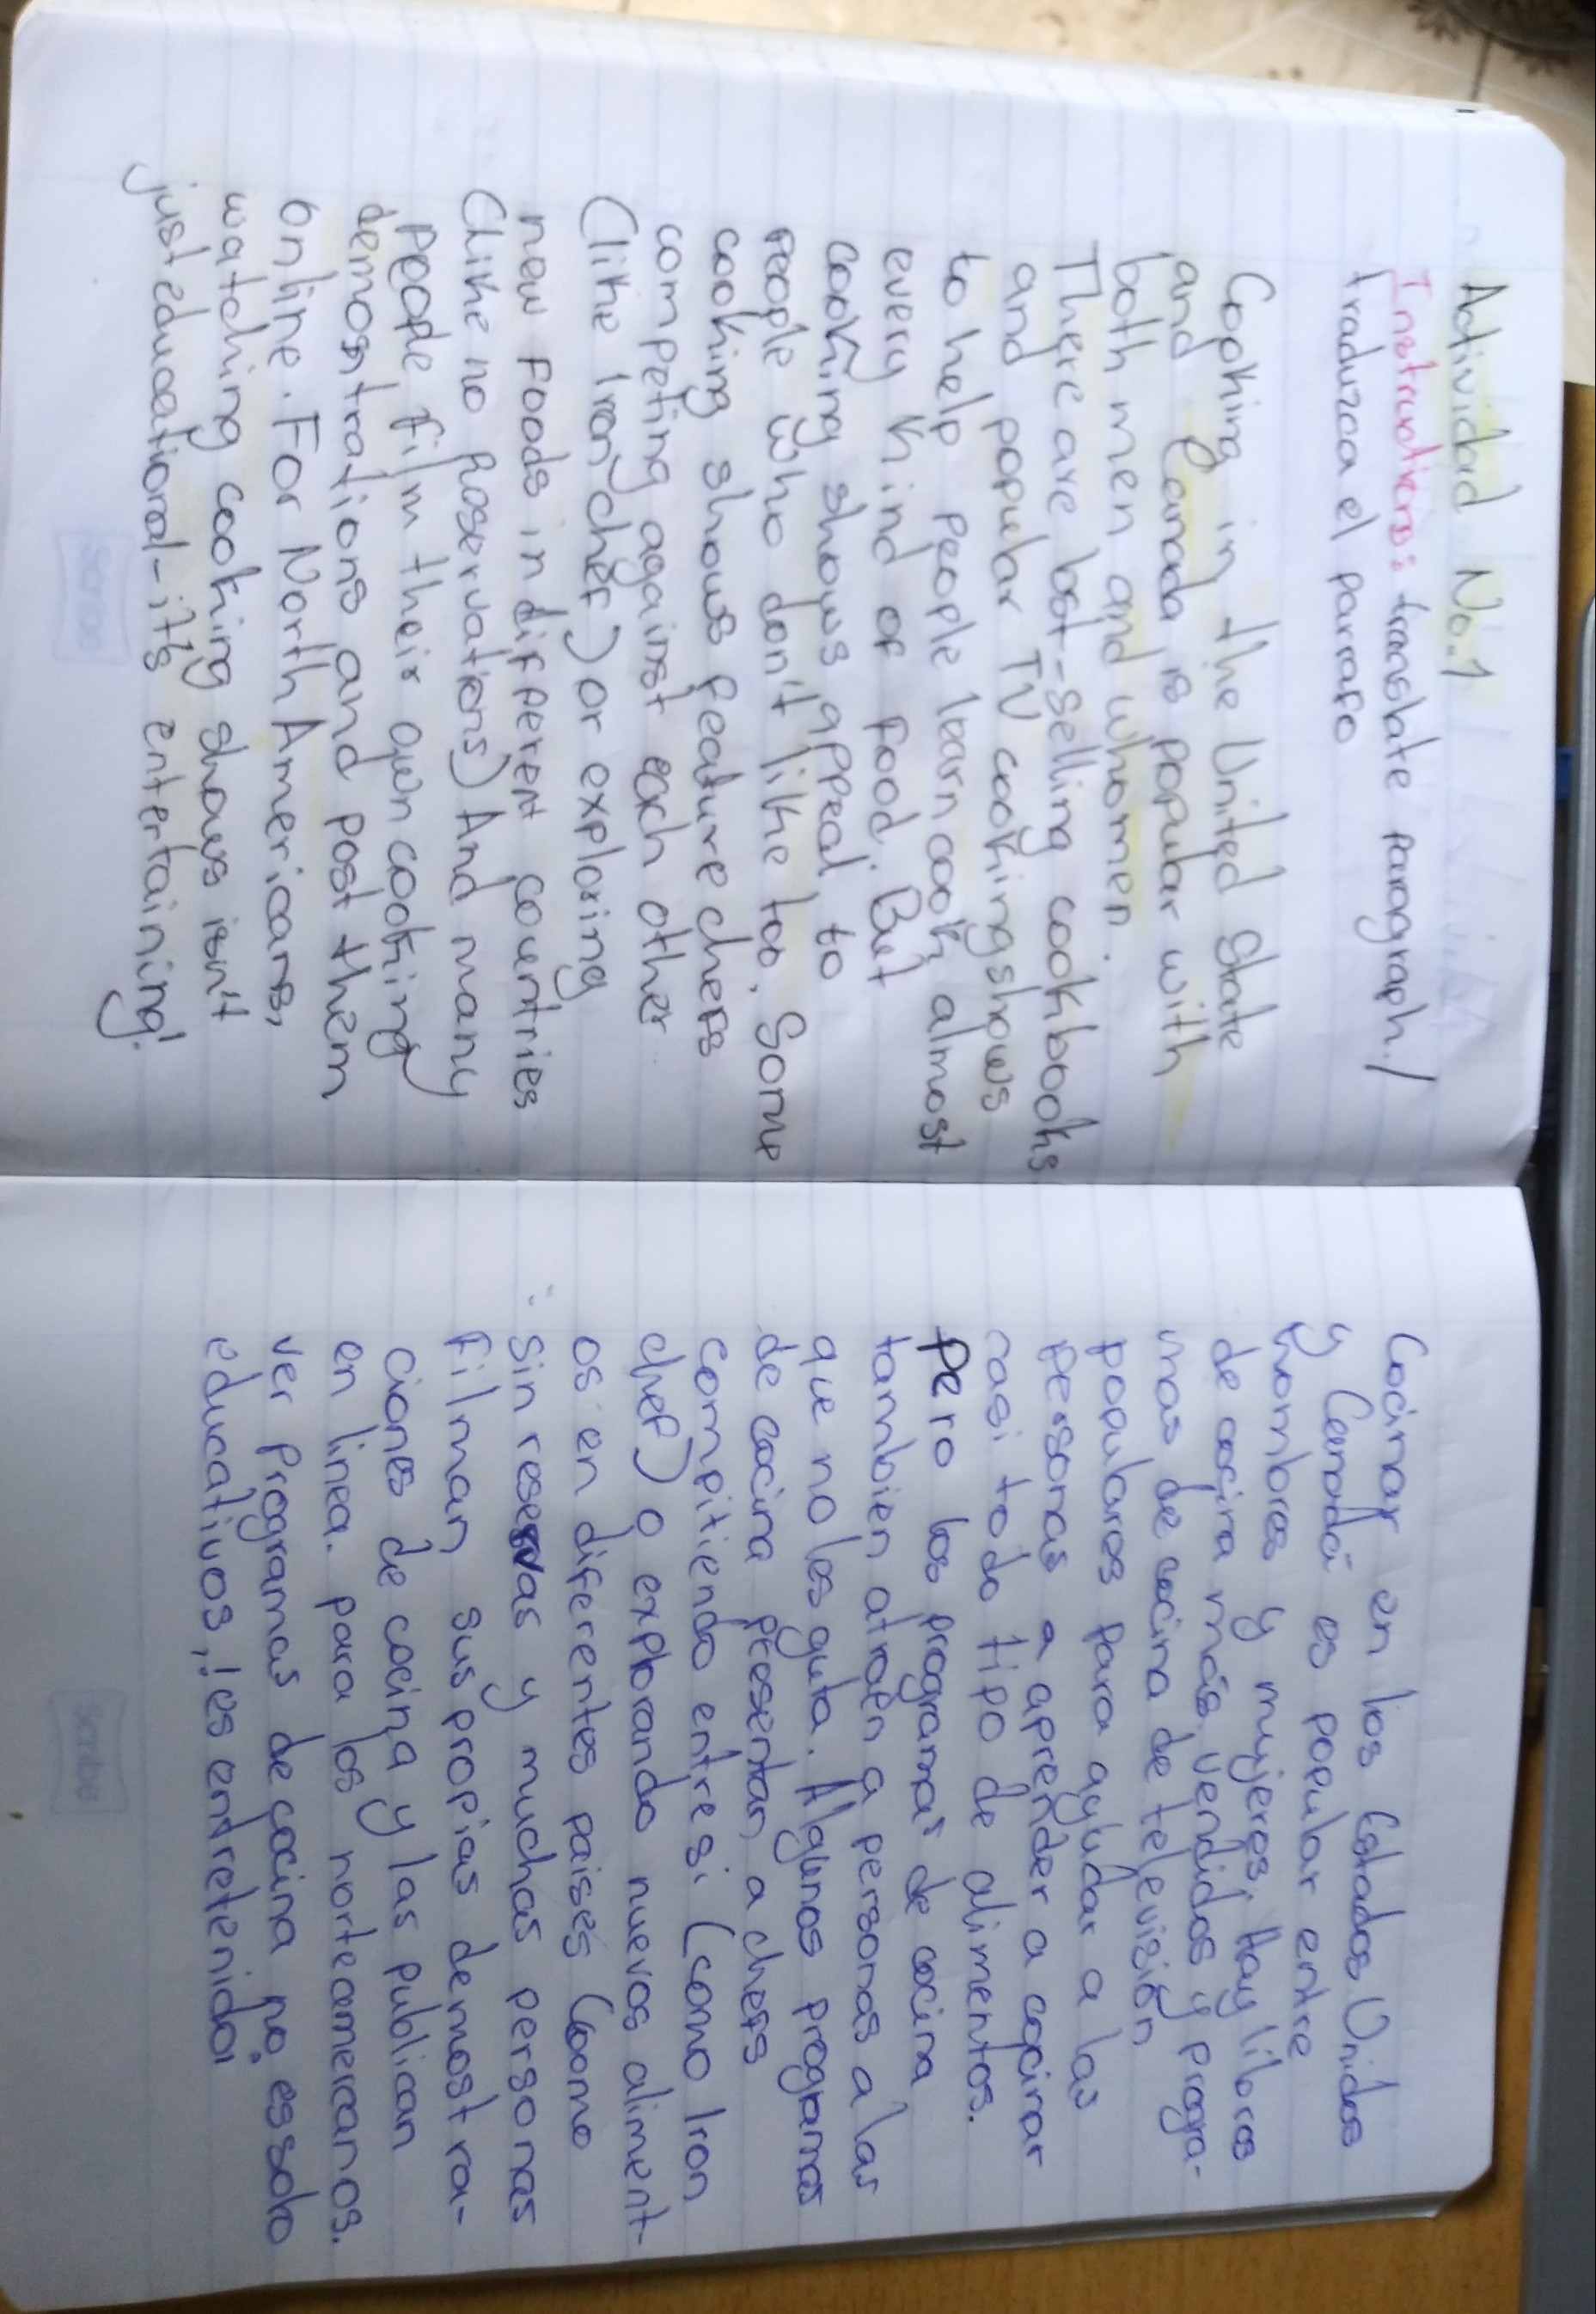 Actividad No.1
Instructions: translate paragraph./
traduzca el parrafo
Cooking in the United State
and Canada is popular with
both men and whomen.
There are best-selling cookbooks
and popular TV cooking shows
to help people learn cook almost
every kind of food. But
cooking shows appeal to
people who don't like too. Some
cooking shows feature chefs
competing against each other
(like Iron chef) or exploring
new foods in different countries
(like no Reservations) And many
people film their own cooking
demosntrations and post them
online. For North Americans,
watching cooking shows isn't
just educational-it's entertaining!
Scribe
Cocinar en los Estados Unidos
y Canadá es popular entre
hombres y mujeres, Hay libros
de cocina más vendidos y progra-
mas de cocina de televisión
populares para ayudar a las
personas a aprender a cocinar
casi todo tipo de alimentos.
pero los programas de cocina
tambien atraen a personas a las
que no les guta. Algunos programas
de cocina presentan a chefs
compitiendo entre si (como Iron
chef) o explorando nuevos aliment-
os en diferentes paises (como
sin reservas y muchas personas
filman sus propias demostra-
ciones de cocina y las publican
en linea. para los norteamercanos.
ver Programas de cocina no es solo
educativos, ! es entretenido¡
Scribe